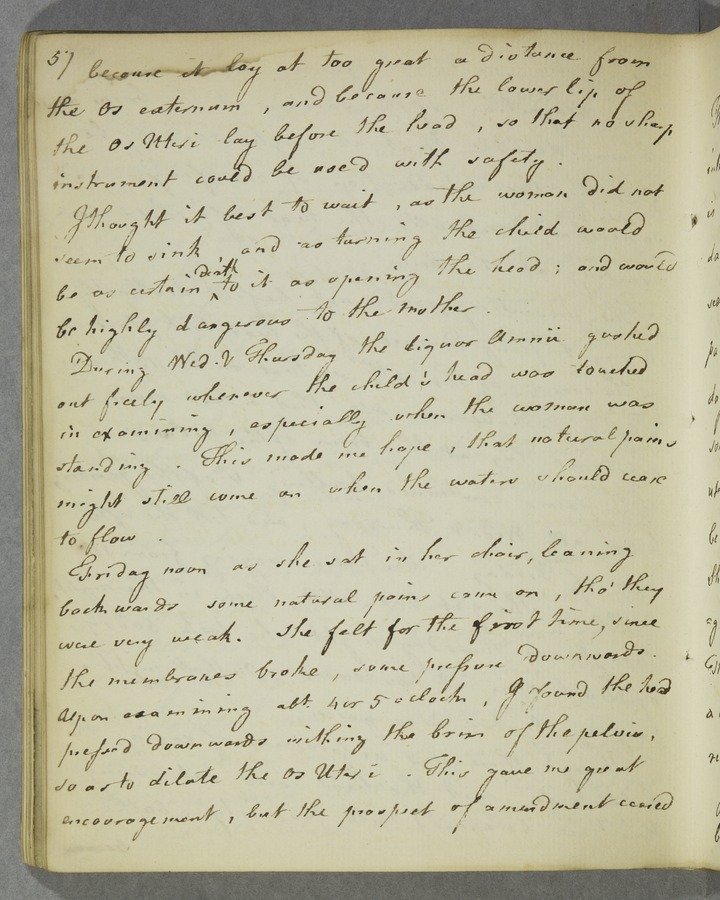 57 because it lay at too great a distance from
the Os externum, and because the lower lip of
the Os Uteri lay before the head, so that no sharp
instrument could be used with safety.
I thought it best to wait, as the woman did not
seem to sink, and as turning the child would
be as certain death to it as opening the head; and would
be highly dangerous to the Mother.
During Wed. & Thursday the liquor Amnii gushed
out freely whenever the child's head was touched
in examining, especially when the woman was
standing. This made me hope, that natural pains
might still come on when the waters should cease
to flow.
Friday noon as she sat in her chair, leaning
backwards some natural pains came on, tho' they
were very weak. She felt for the first time, since
the membranes broke, some pressure downwards.
Upon examining abt 4 or 5 oclock, I found the head
pressed downwards withing the brim of the pelvis,
so as to dilate the os Uteri. This gave me great
encouragement, but the prospect of amendment ceased